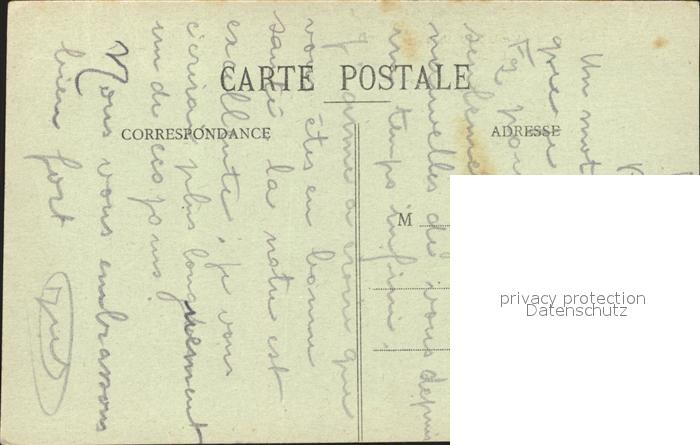 CARTE POSTALE
CORRESPONDANCE
ADRESSE
M
privacy protection
Datenschutz
Un mot
que
pour
seuleme
nouvelles de vous depuis
un temps infini.
J'aime à croire que
vous êtes en bonne
santé la notre est
excellente; je vous
écrirai plus longuement
un de ces jours.
Nous vous embrassons
bien fort